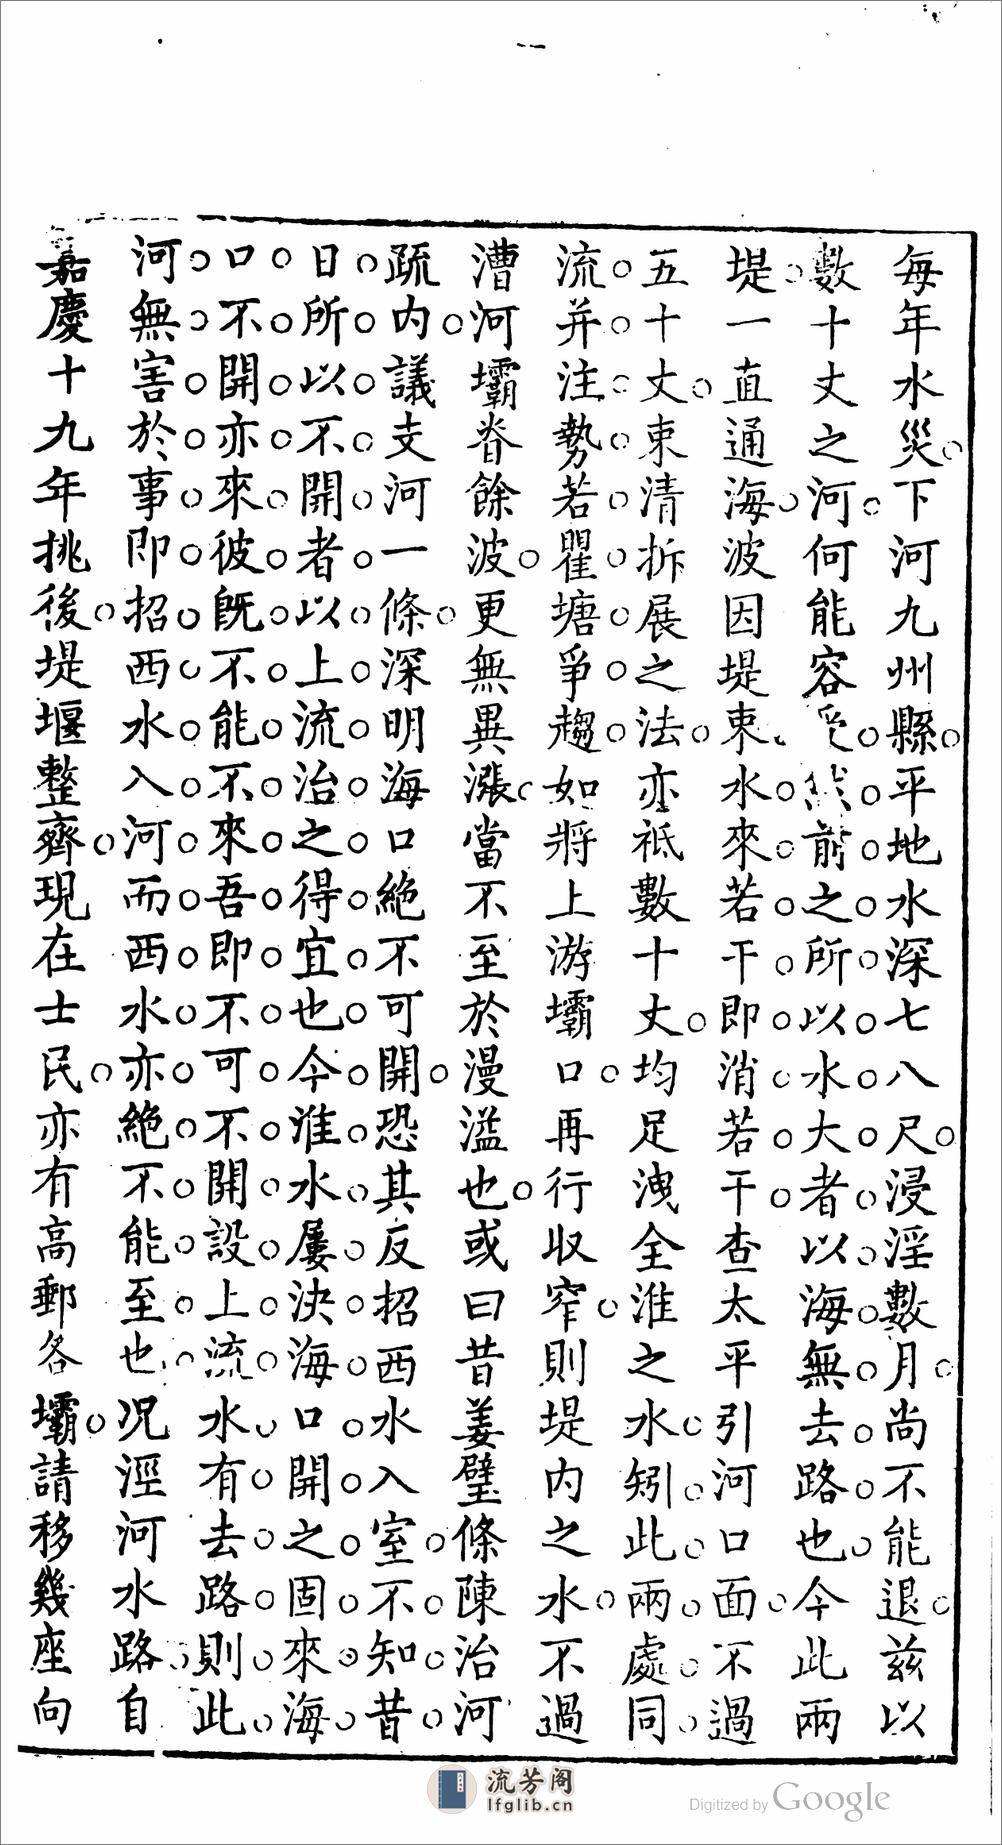 每年水災下河九州縣平地水深七八尺浸淫數月尚不能退茲以
數十丈之河何能容受從前之所以水大者以海無去路也今此兩
堤一直通海波因堤束水來若干即消若干查太平引河口面不過
五十丈束清拆展之法亦祇數十丈均足洩全淮之水矧此兩處同
流并注勢若瞿塘爭趨如將上游壩口再行收窄則堤內之水不過
漕河壩脊餘波更無異漲當不至於漫溢也或曰昔姜璧條陳治河
疏內議支河一條深明海口絕不可開恐其反招西水入室不知昔
日所以不開者以上流治之得宜也今淮水屢決海口開之固來海
口不開亦來彼既不能不來吾即不可不開設上流水有去路則此
河無害於事即招西水入河而西水亦絕不能至也况涇河水路自
嘉慶十九年挑後堤堰整齊現在士民亦有高郵各壩請移幾座向
流芳阁
lfglib.cn
Digitized by Google